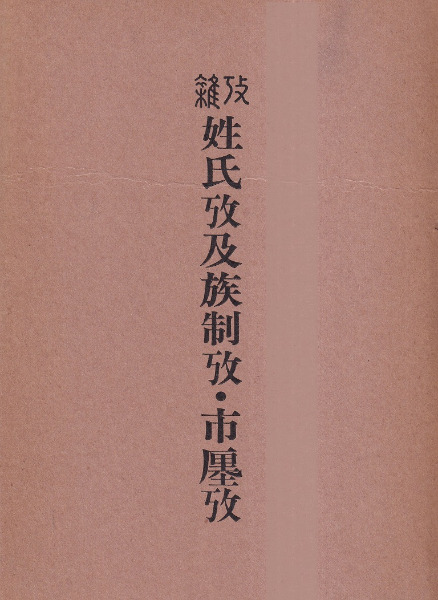 雜攷
姓氏攷及族制攷・市㕓攷